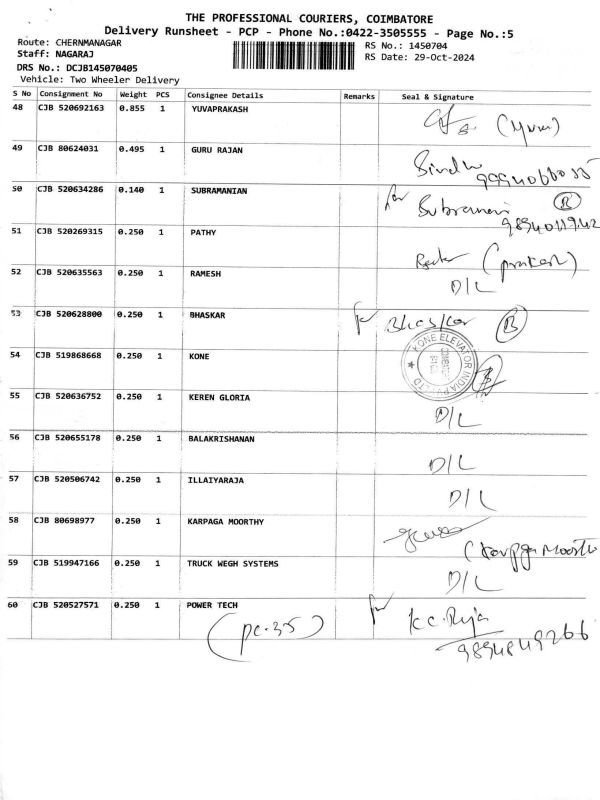 THE PROFESSIONAL COURIERS, COIMBATORE
Delivery Runsheet - PCP - Phone No.:0422-3505555 - Page No.:5
Route: CHERNMANAGAR
RS No.: 1450704
Staff: NAGARAJ
RS Date: 29-Oct-2024
DRS No.: DCJB145070405
Vehicle: Two Wheeler Delivery
S No Consignment No Weight PCS Consignee Details Remarks Seal & Signature
48 CJB 520692163 0.855 1 YUVAPRAKASH
49 CJB 80624031 0.495 1 GURU RAJAN Sindhu
50 CJB 520634286 0.140 1 SUBRAMANIAN for Subramani B
9894011942
51 CJB 520269315 0.250 1 PATHY (prakash)
52 CJB 520635563 0.250 1 RAMESH D/L
53 CJB 520628800 0.250 1 BHASKAR for Bhaskar B
54 CJB 519868668 0.250 1 KONE KONE ELEVATOR INDIA PVT LTD
55 CJB 520636752 0.250 1 KEREN GLORIA D/L
56 CJB 520655178 0.250 1 BALAKRISHANAN D/L
57 CJB 520506742 0.250 1 ILLAIYARAJA D/L
58 CJB 80698977 0.250 1 KARPAGA MOORTHY
59 CJB 519947166 0.250 1 TRUCK WEGH SYSTEMS D/L
60 CJB 520527571 0.250 1 POWER TECH for K.C. Raja
(pc-35) 9894849266